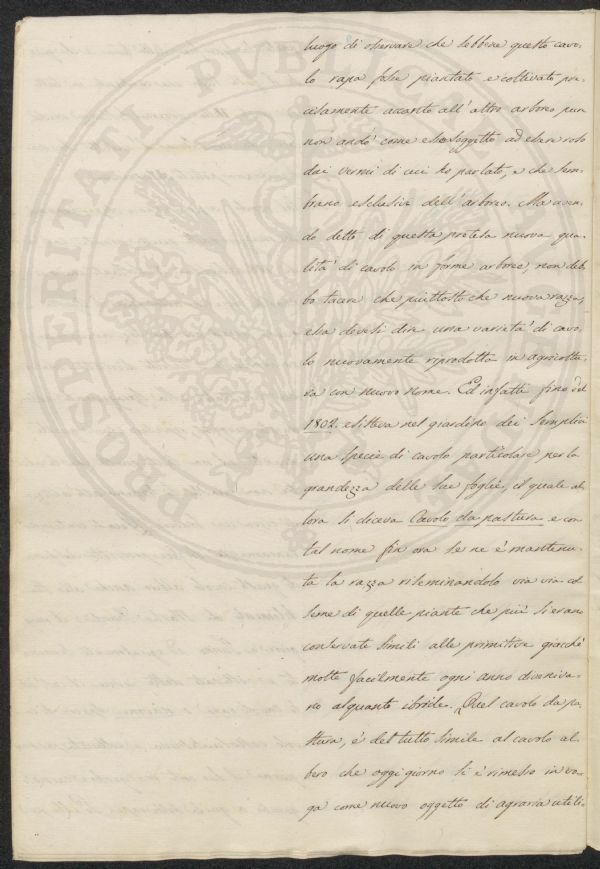 luogo di osservare che sebbene questo cavo-
lo rapa fosse piantato e coltivato pre-
cisamente accanto all'altro arboreo pure
non andò come esso soggetto ad essere roso
dai vermi di cui ho parlato, e che sem-
brano esclusivi dell'arboreo. Ma aven-
do detto di questa pretesa nuova qua-
lità di cavolo in forme arboree, non deb-
bo tacere che piuttosto che nuova razza,
essa devesi dire una varietà di cavo-
lo nuovamente riprodotta in agricoltu-
ra con nuovo nome. Ed infatti fino del
1802. esisteva nel giardino dei Semplici
una specie di cavolo particolare per la
grandezza delle sue foglie, il quale al-
lora si diceva Cavolo da pastura e con
tal nome fin ora se ne è mantenu-
ta la razza riseminandolo via via col
seme di quelle piante che più si erano
conservate simili alle primitive giacchè
molte facilmente ogni anno diveniva-
no alquanto ibride. Quel cavolo da pa-
stura, è del tutto simile al cavolo al-
bero che oggi giorno si è rimesso in vo-
ga come nuovo oggetto di agraria utili-
PROSPERITATI PUBLICAE